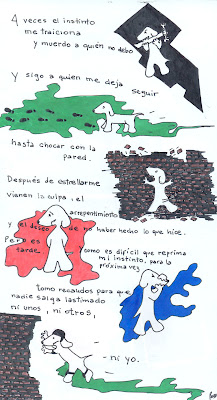 A veces el instinto
me traiciona
y muerdo a quién no debo
y sigo a quien me deja seguir
hasta chocar con la
pared.
Después de estrellarme
vienen la culpa, el
arrepentimiento
y el deseo de no haber hecho lo que hice.
Pero es
tarde
como es difícil que reprima
mi instinto, para la
próxima vez
tomo recaudos para que
nadie salga lastimado
ni unos, ni otros,
- ni yo.